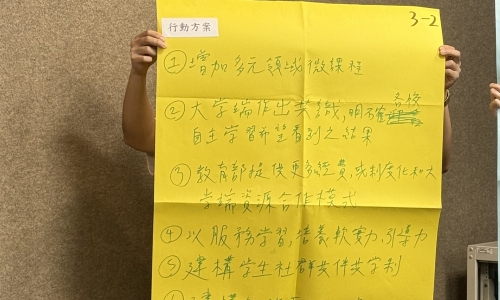 行動方案
3-2
①增加多元領域微課程
②大學端作出共識,明確各校
自主學習希望看到之結果
③教育部提供更多經費,或制度化和大
學端資源合作模式
④以服務學習,培養軟實力,引導力
⑤建構學生社群共伴共學制